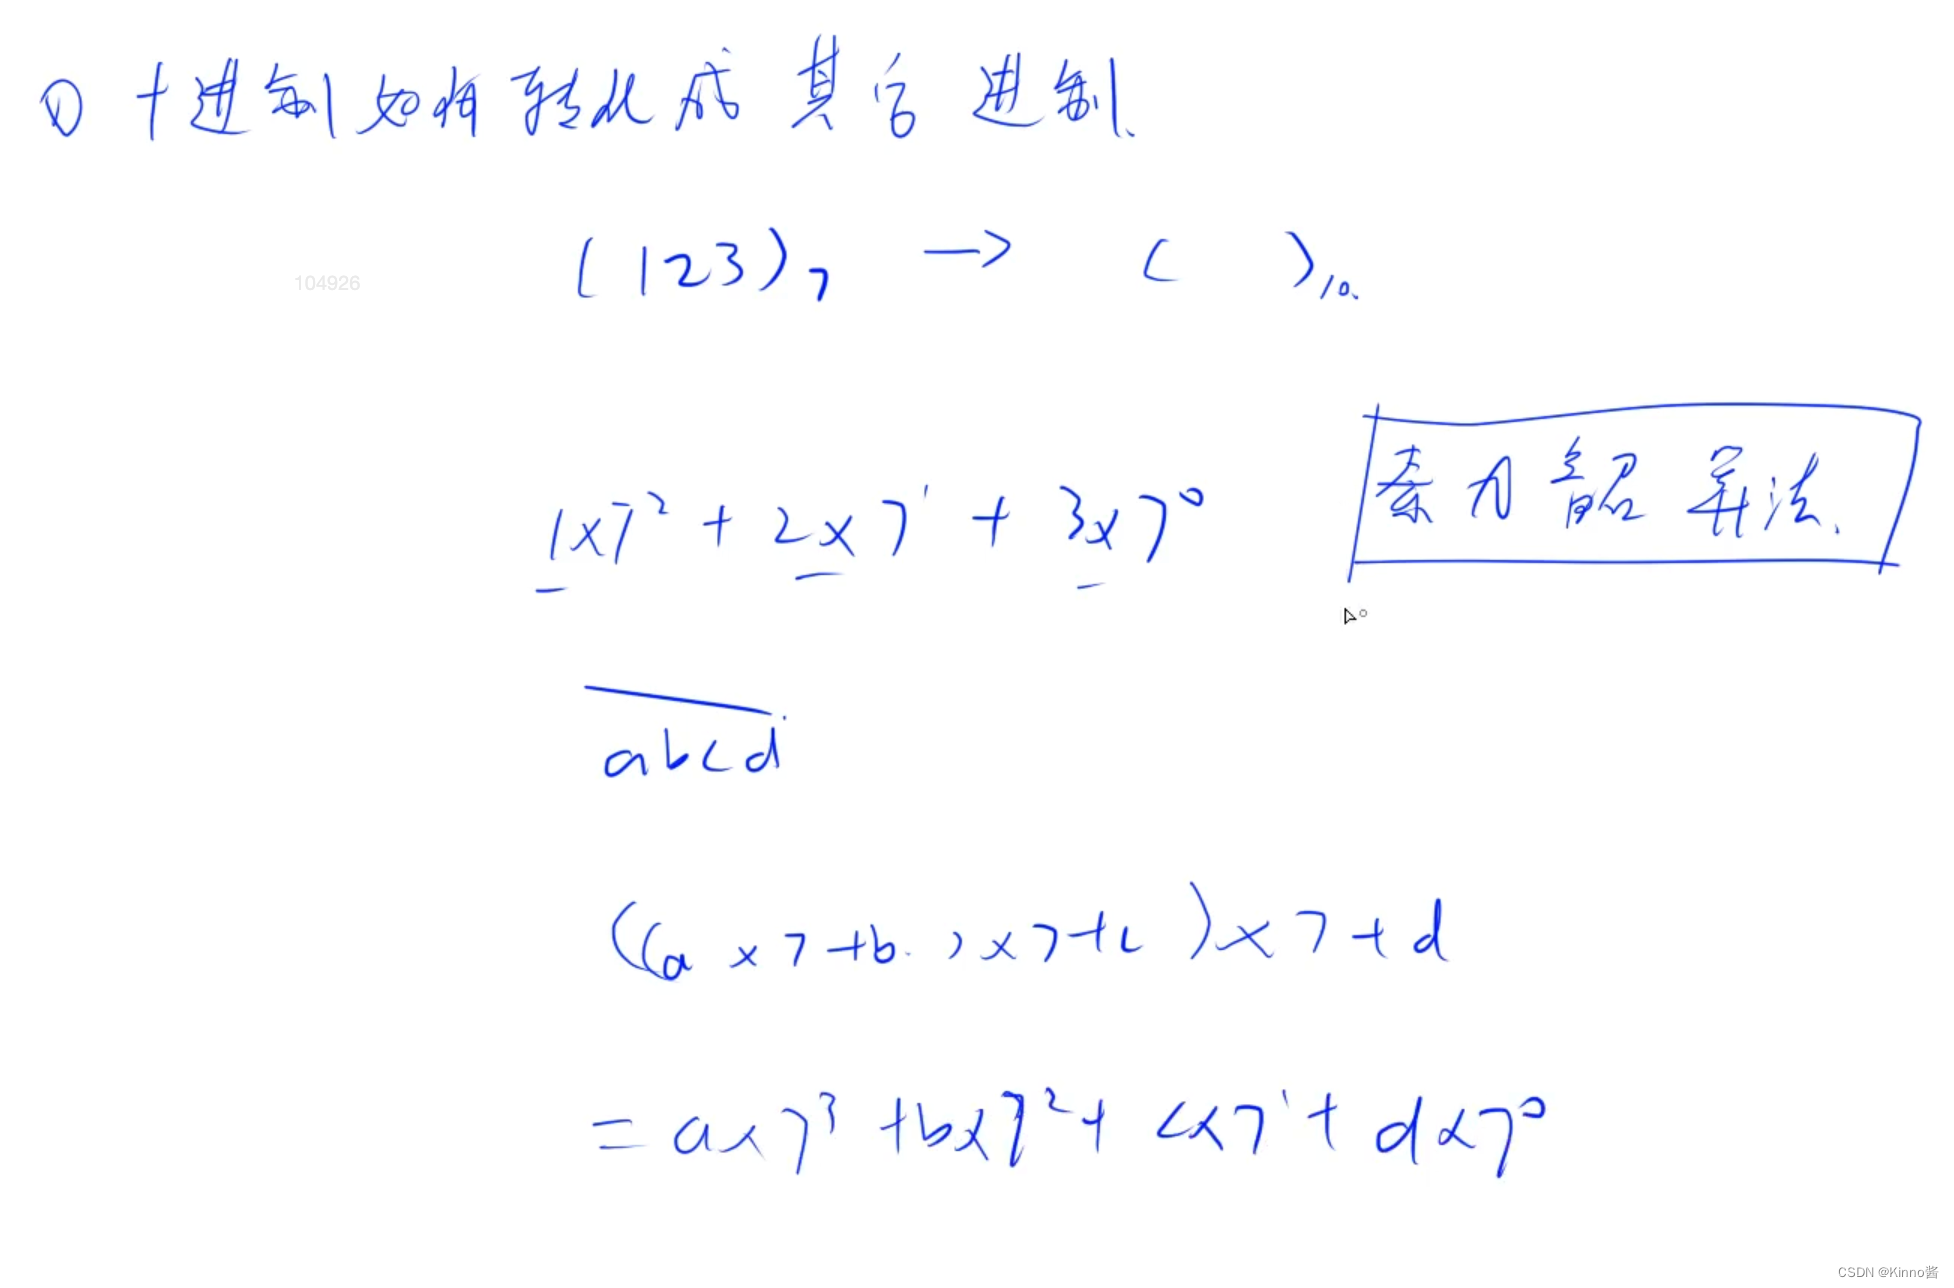 ① 十进制如何转化成其它进制.
(123)₇ → (  )₁₀.
104926
1×7² + 2×7¹ + 3×7⁰
秦九韶算法.
abcd
((a×7+b)×7+c)×7+d
=a×7³+b×7²+c×7¹+d×7⁰
CSDN @Kinno酱